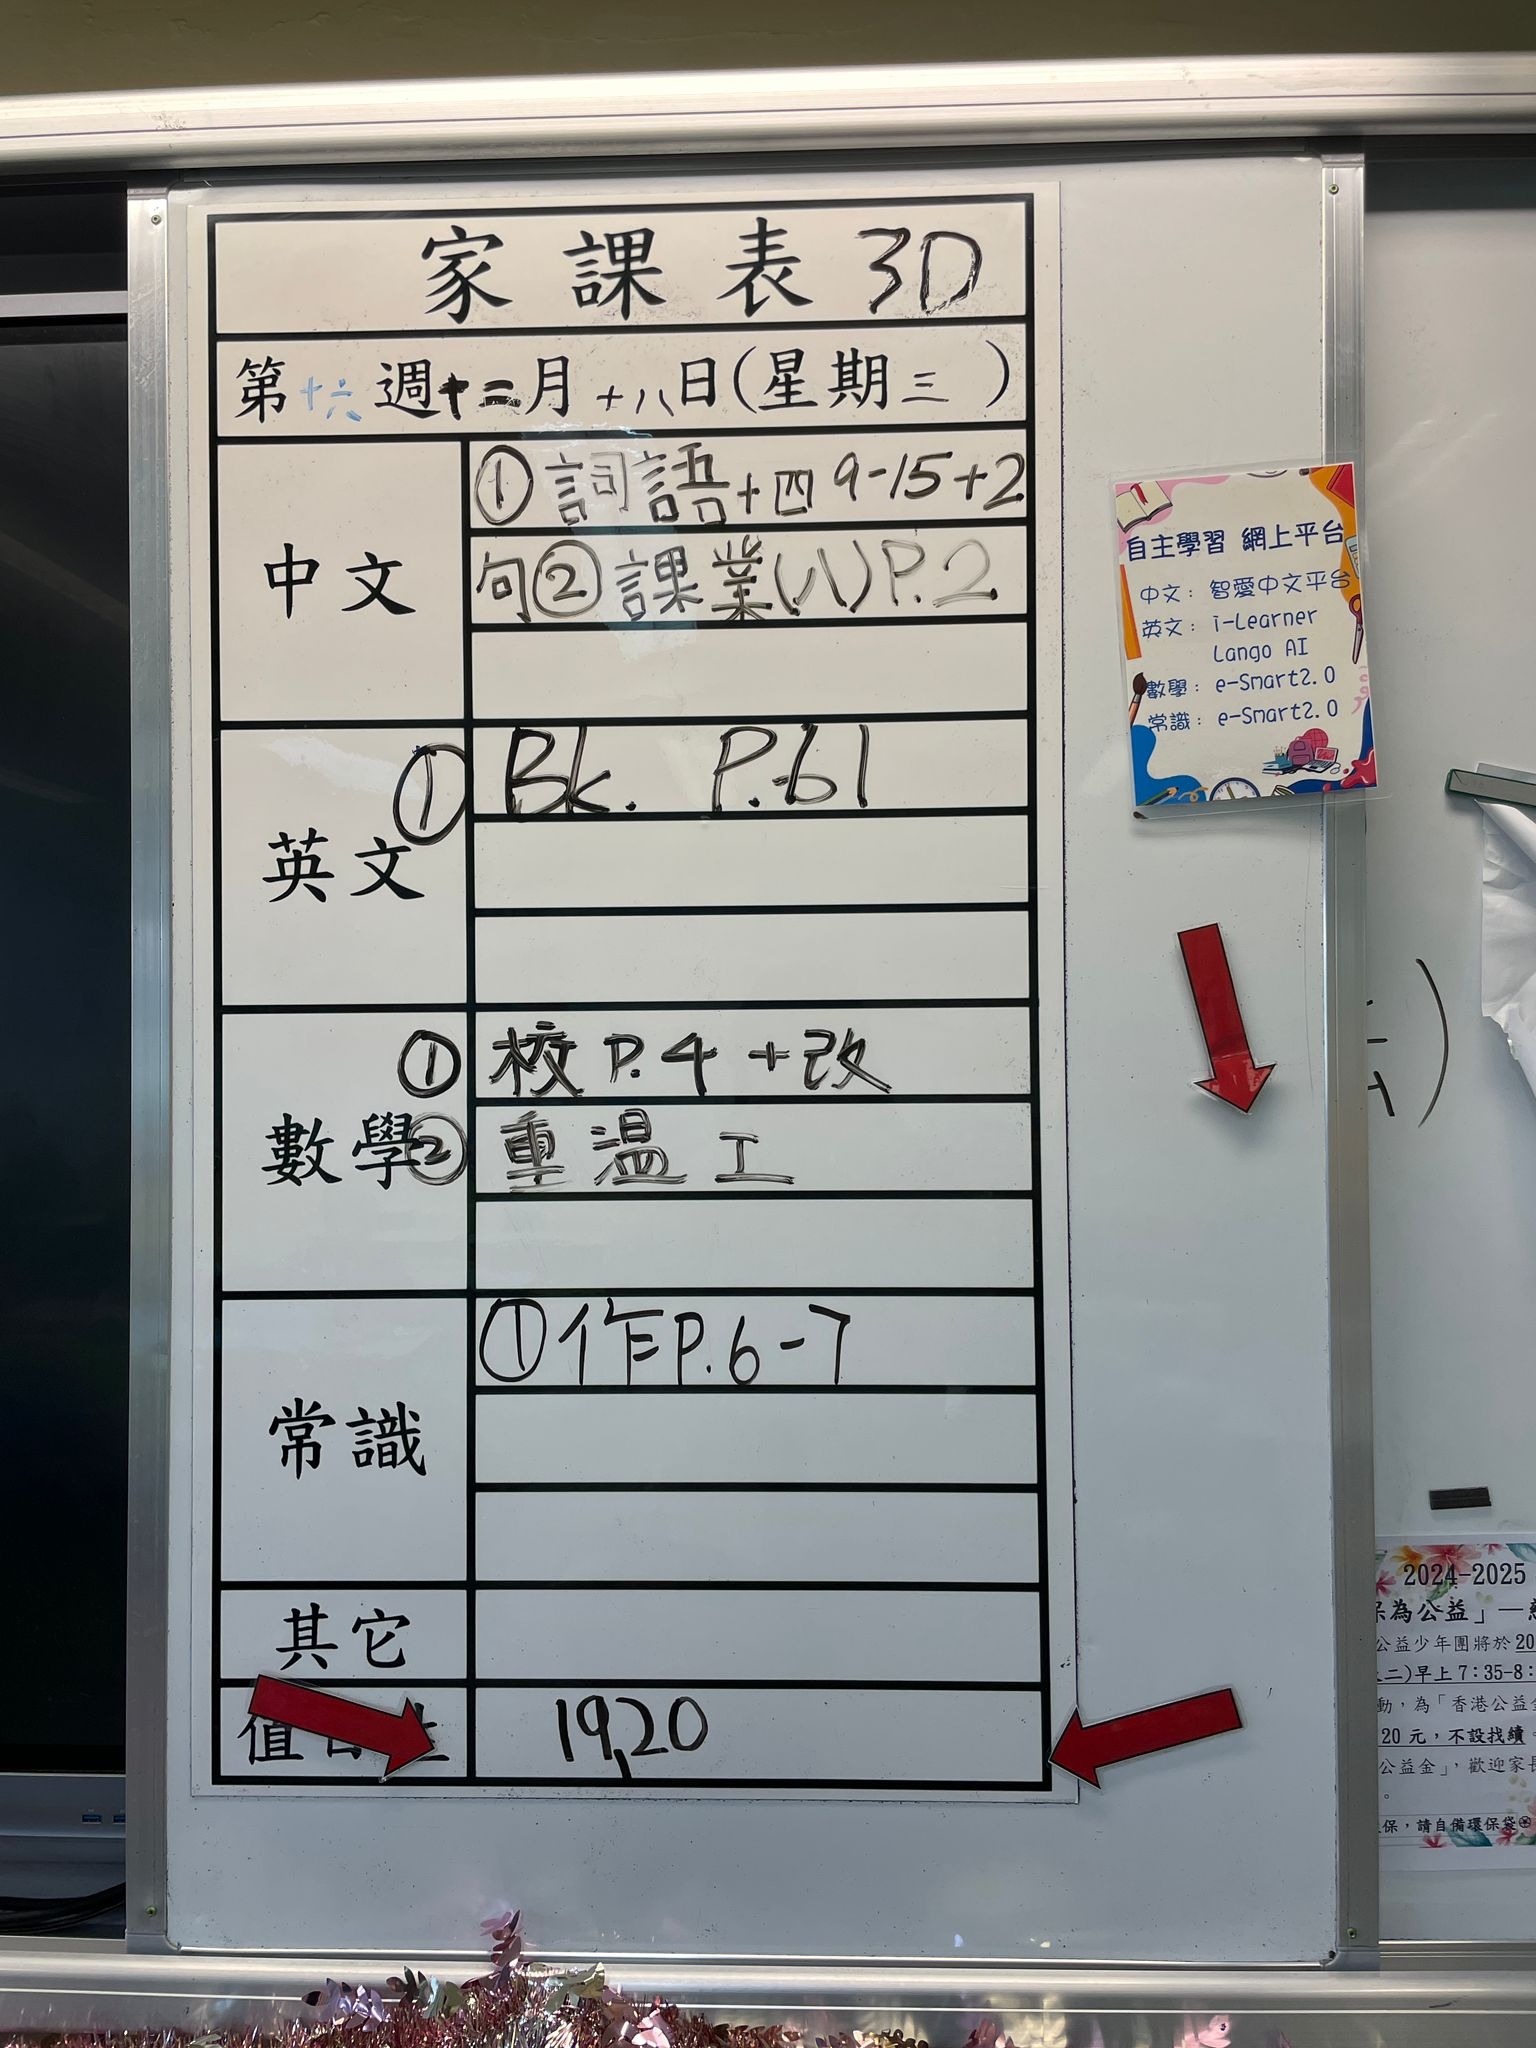 家課表 3D
第十六週十二月十八日(星期三)
中文
① 詞語+四 9-15+2
句② 課業(八)P.2
英文
① Bk. P.61
數學
① 校 P.4 +改
② 重溫工
常識
① 作P.6-7
其它
值日生
19,20
自主學習 網上平台
中文：智愛中文平台
英文：i-Learner
Lango AI
數學：e-Smart2.0
常識：e-Smart2.0
2024-2025
為公益」—
公益少年團將於20
二)早上7:35-8:
動，為「香港公益金
20元，不設找續。
公益金」，歡迎家長
。
保，請自備環保袋